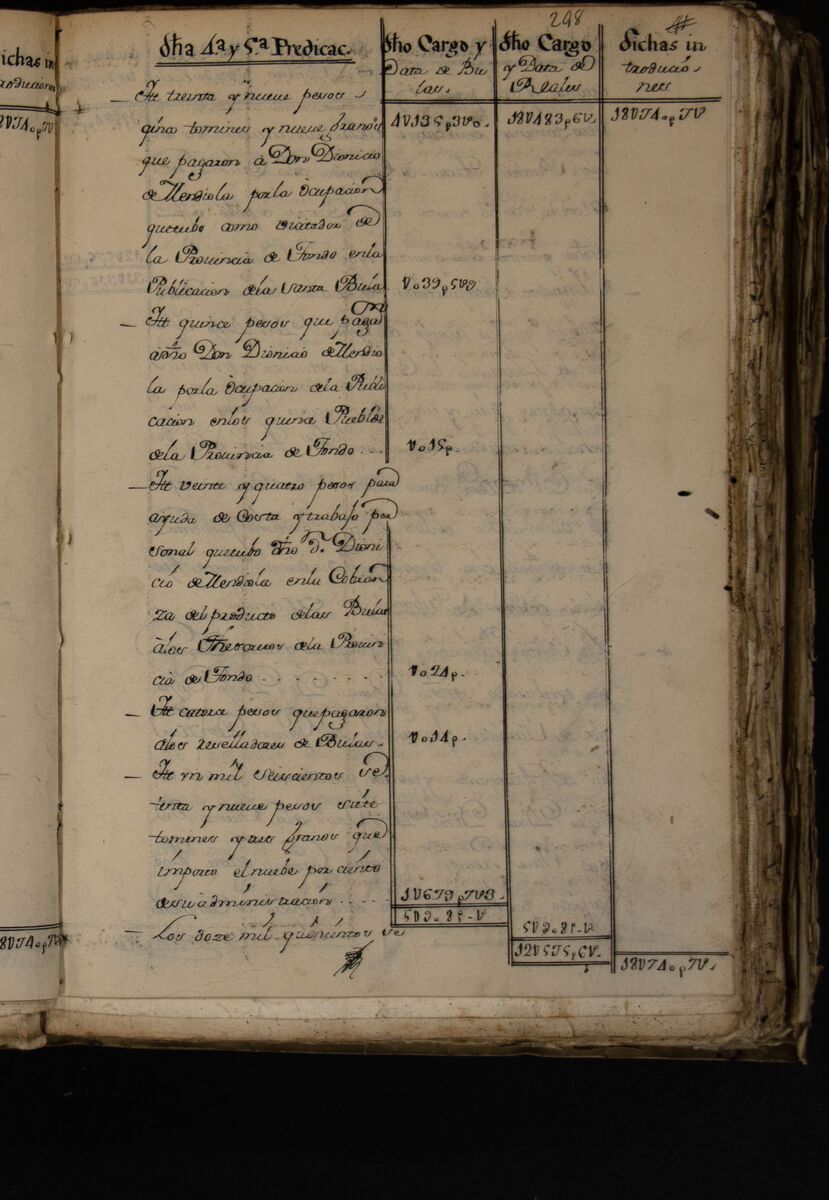 298
dha 4.ª y 5.ª Predicac.
dho Cargo y
Data de Bu
las.
dho Cargo
y Data de
Reales
dichas in
troduccio
nes
4V135p3Vo.
18V483p6V.
18V740p7V.
It treinta y nueve pesos
cinco tomines y nueve granos
que pagaron á Don Dionicio
de Mendiola por la ocupacion
que tubo como dictador de
la Provincia de Tondo en la
Publicacion de la Santa Bula
Vo39p5V9
It quince pesos que pagaron
á dho Don Dionicio de Mendio
la por la ocupacion de la Publi
cacion en los quince Pueblos
de la Provincia de Tondo ...
Vo15p.
It veinte y quatro pesos para
ayuda de Costa y trabajo per
sonal que tubo dho d.n Dioni
cio de Mendiola en la Cobran
za del producto de las Bulas
á los Thesoreros de la Provin
cia de Tondo . . . . . . . .
Vo24p.
It catorce pesos que pagaron
á los reselladores de Bulas.
Vo14p.
It un mil seiscientos se
tenta y nueve pesos siete
tomines y tres granos que
importó el nuebe por ciento
de su administración . . . .
1V679p7V3
5V908p-V
Los doze mil quinientos se
5V908p-V
12V575p6V.
18V740p7V.
dichas in
troduccion
18V740p7V
18V740p7V